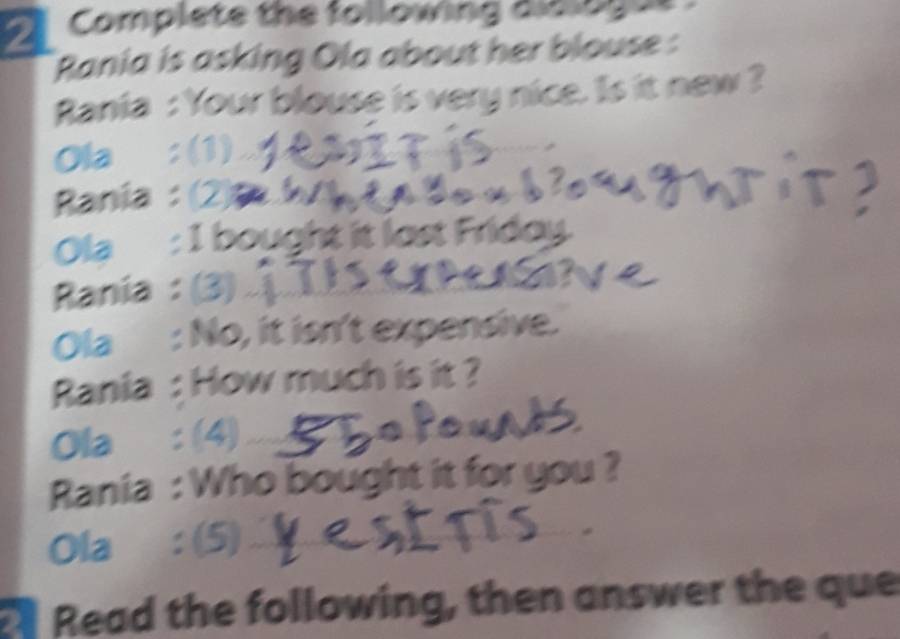 2 Complete the following dialogue :
Rania is asking Ola about her blouse :
Rania : Your blouse is very nice. Is it new ?
Ola : (1) yes, IT is
Rania : (2) When you bought iT ?
Ola : I bought it last Friday.
Rania : (3) iT is expensive
Ola : No, it isn't expensive.
Rania : How much is it ?
Ola : (4) Pounds.
Rania : Who bought it for you ?
Ola : (5) Yes, IT is
3 Read the following, then answer the que